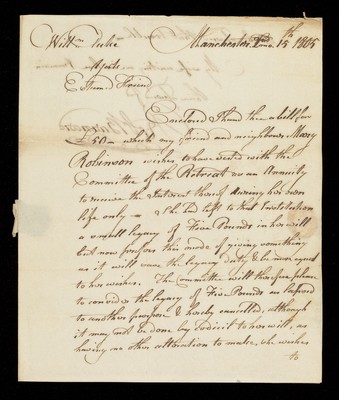 Willm Tuke Manchester 15th 1805
York
Esteemed Friend
Enclosed I hand thee a bill for
£50 – which my friend and neighbour Mary
Robinson wishes to have vested with the
Committee of the Retreat as an Annuity
to receive the Interest thereof during her own
life only – She had left to that Institution
a small legacy of Five Pounds in her will
but now prefers this mode of giving something
as it will save the legacy duty & be more equal
to her wishes. The Committee will therefore please
to consider the legacy of Five Pounds as
to another purpose & hereby cancelled, although
it may not be done by Codicil to her will, as
having no other alteration to make, she wishes
to